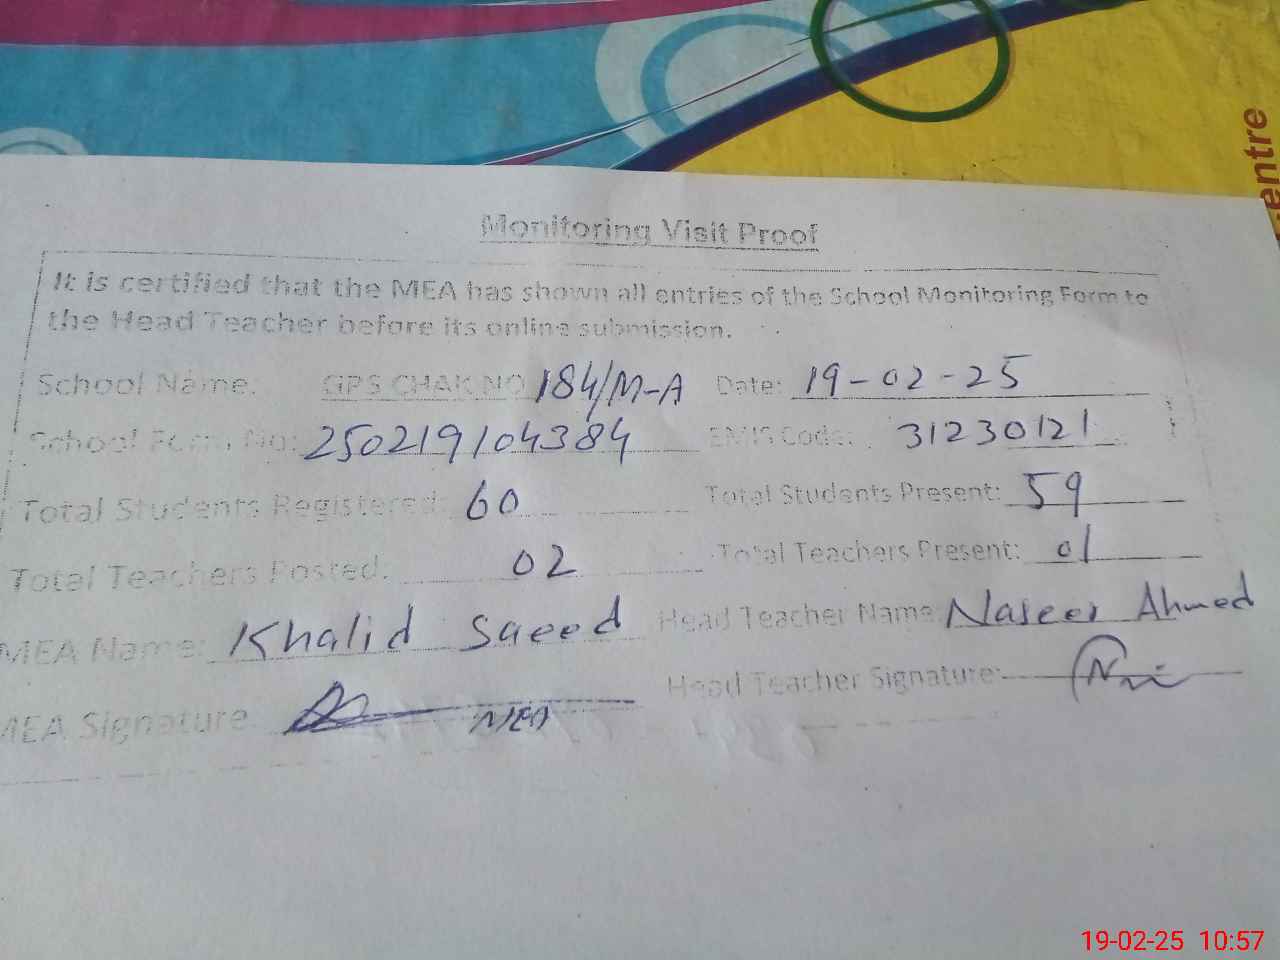 entre
Monitoring Visit Proof
It is certified that the MEA has shown all entries of the School Monitoring Form to
the Head Teacher before its online submission.
School Name: GPS CHAK NO 184/M-A Date: 19-02-25
School Form No: 250219104384 EMIS Code: 31230121
Total Students Registered: 60 Total Students Present: 59
Total Teachers Posted: 02 Total Teachers Present: 01
MEA Name: Khalid Saeed Head Teacher Name: Naseer Ahmed
MEA Signature: MEA Head Teacher Signature:
19-02-25 10:57